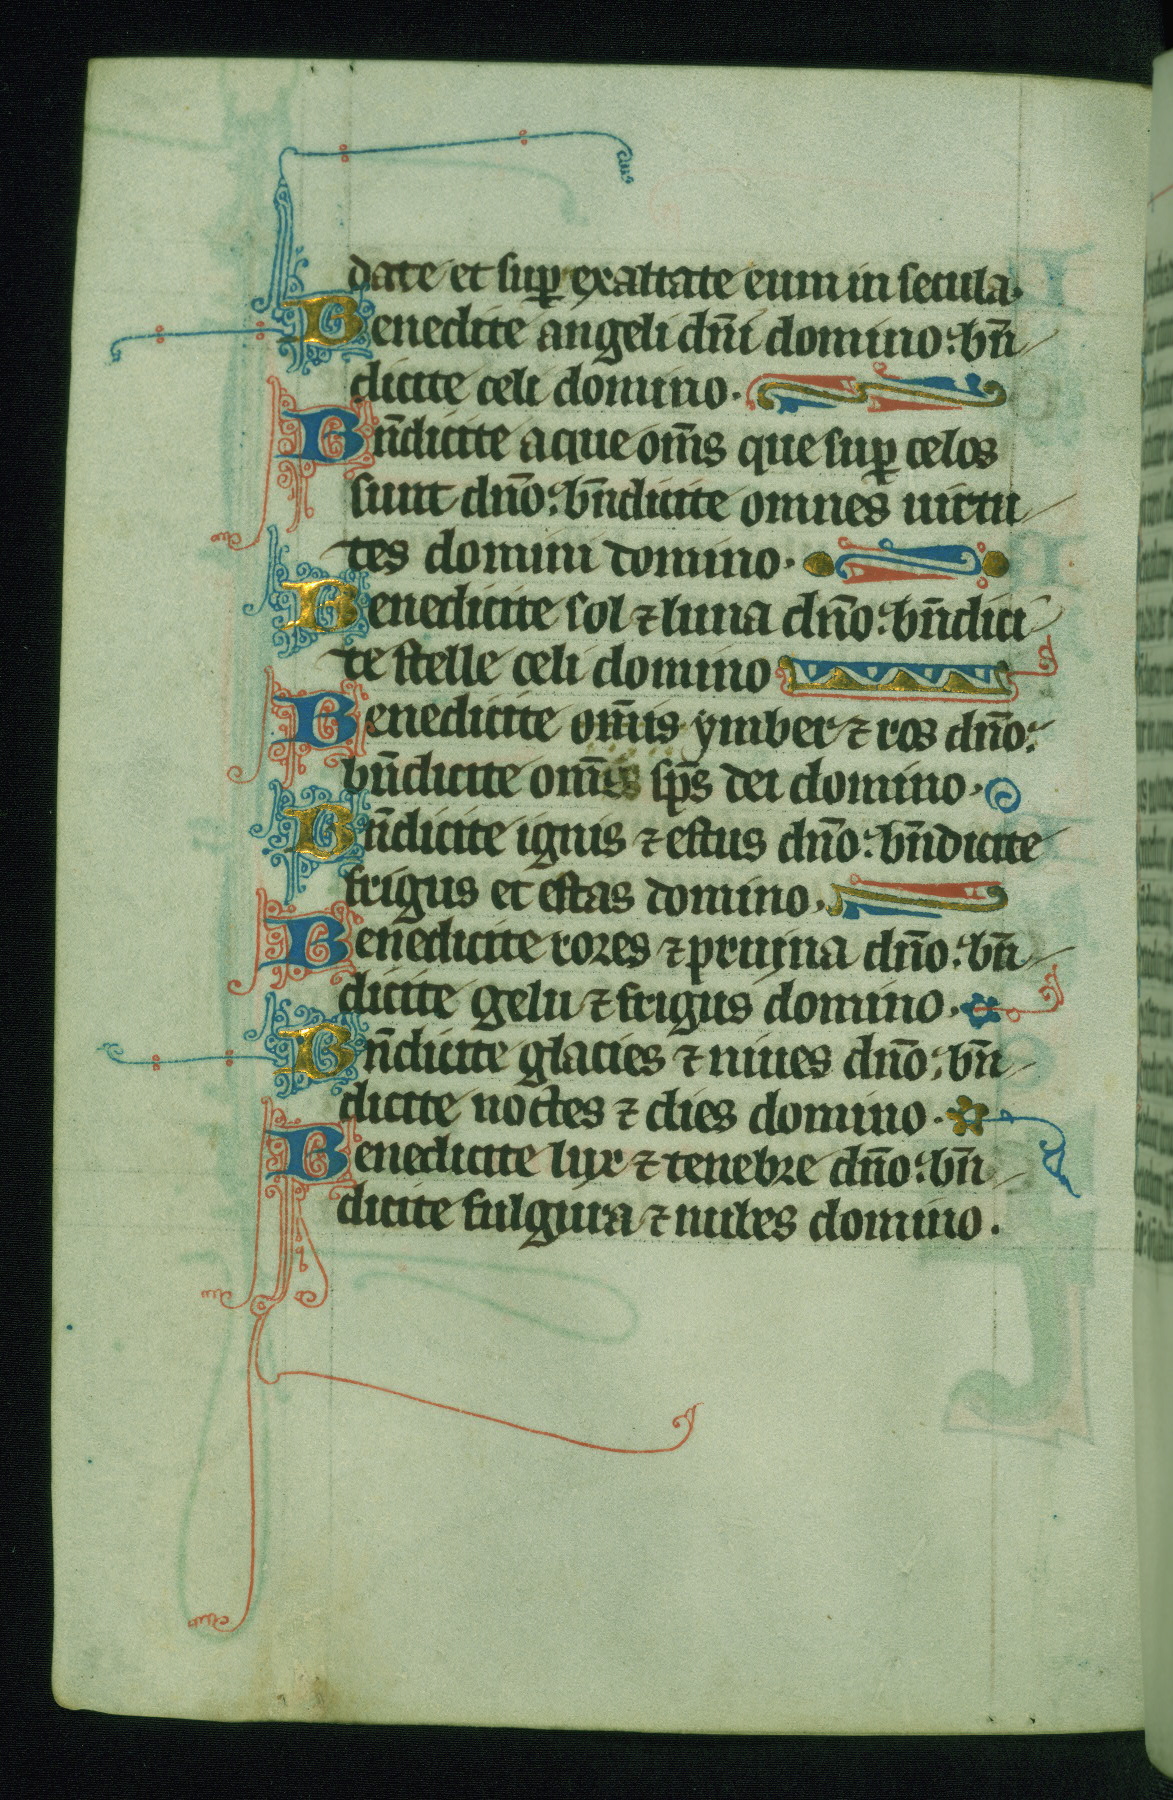 date et sup exaltate eum in secula.
Benedicite angeli dn̄i domino: bn̄
dicite celi domino.
Bn̄dicite aque om̄s que sup celos
sunt dn̄o: bn̄dicite omnes uirtu
tes domini domino.
Benedicite sol ⁊ luna dn̄o: bn̄dici
te stelle celi domino
Benedicite om̄is ymber ⁊ ros dn̄o:
bn̄dicite om̄s sp̄s dei domino.
Bn̄dicite ignis ⁊ estus dn̄o: bn̄dicite
frigus et estas domino.
Benedicite rores ⁊ pruina dn̄o: bn̄
dicite gelu ⁊ frigus domino.
Bn̄dicite glacies ⁊ niues dn̄o: bn̄
dicite noctes ⁊ dies domino.
Benedicite lux ⁊ tenebre dn̄o: bn̄
dicite fulgura ⁊ nubes domino.